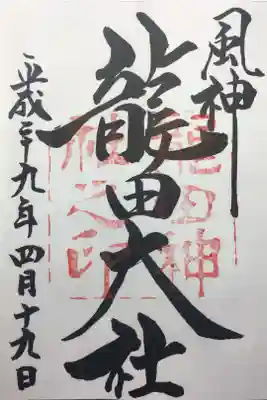 風神
龍田大社
平成二十九年四月十九日
龍田神
社之印